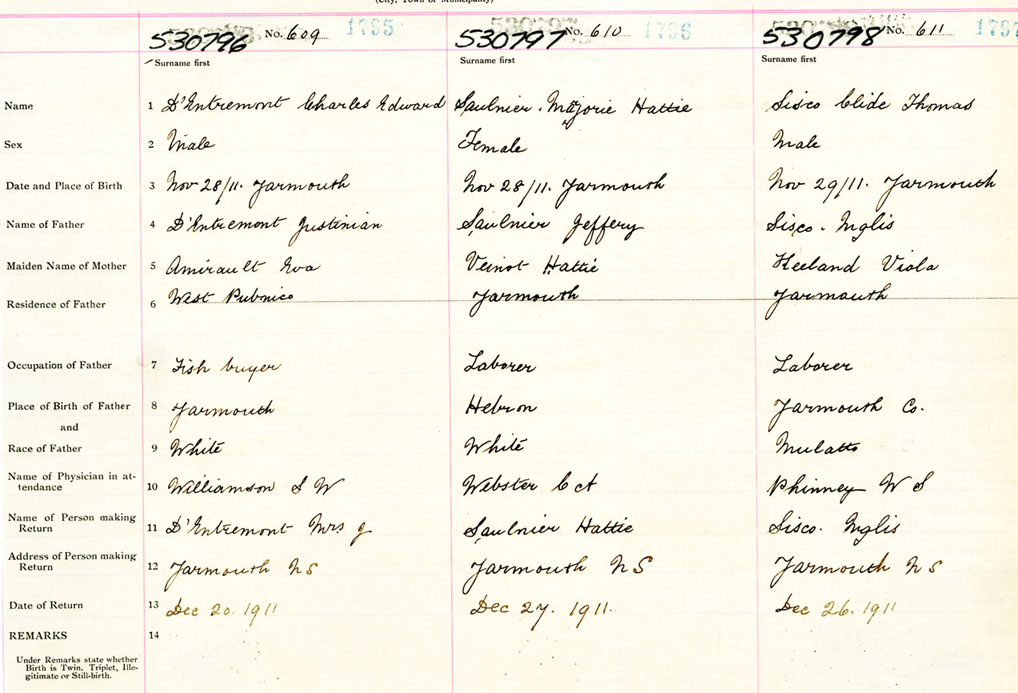 (City, Town or Municipality)
530796 No. 609 1735 530797 No. 610 1736 530798 No. 611
Surname first Surname first Surname first
Name 1 D'Entremont Charles Edward Saulnier. Marjorie Hattie Sisco Clide Thomas
Sex 2 Male Female Male
Date and Place of Birth 3 Nov 28/11. Yarmouth Nov 28/11. Yarmouth Nov 29/11. Yarmouth
Name of Father 4 D'Entremont Justinian Saulnier Jeffery Sisco. Inglis
Maiden Name of Mother 5 Amirault Eva Veinot Hattie Heeland Viola
Residence of Father 6 West Pubnico Yarmouth Yarmouth
Occupation of Father 7 Fish buyer Laborer Laborer
Place of Birth of Father 8 Yarmouth Hebron Yarmouth Co.
and
Race of Father 9 White White Mulatto
Name of Physician in at-
tendance 10 Williamson S W Webster C A Phinney W S
Name of Person making
Return 11 D'Entremont Mrs J Saulnier Hattie Sisco. Inglis
Address of Person making
Return 12 Yarmouth N S Yarmouth N S Yarmouth N S
Date of Return 13 Dec 20. 1911 Dec 27. 1911. Dec 26. 1911
REMARKS 14
Under Remarks state whether
Birth is Twin, Triplet, Ille-
gitimate or Still-birth.